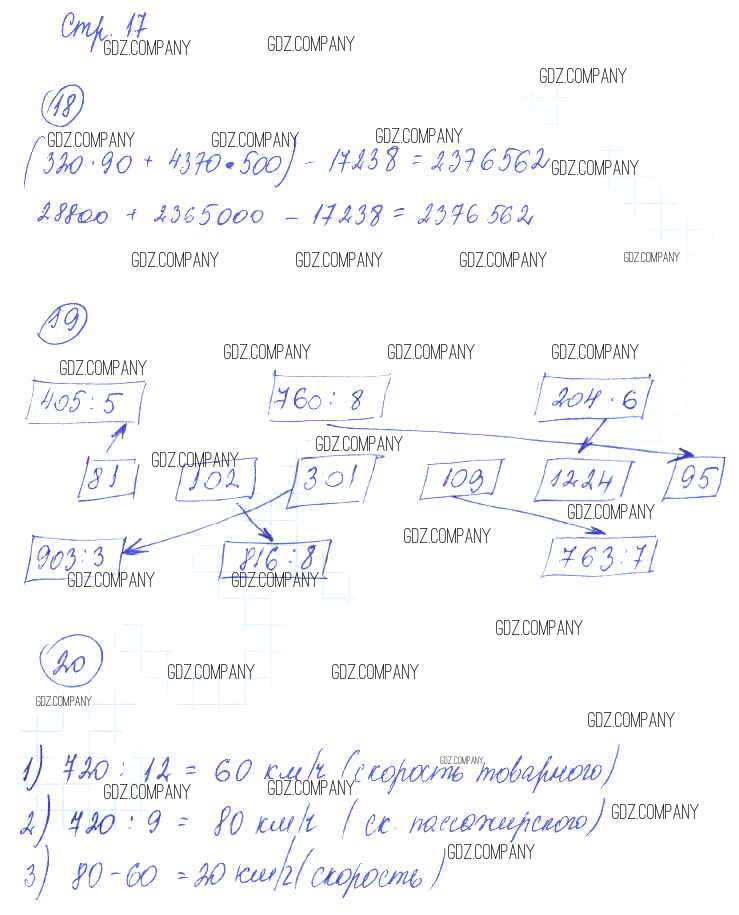 Стр. 17
GDZ.COMPANY GDZ.COMPANY
GDZ.COMPANY
18
GDZ.COMPANY GDZ.COMPANY GDZ.COMPANY
(320·90 + 4370·500) - 17238 = 2376562
GDZ.COMPANY
28800 + 2365000 - 17238 = 2376562
GDZ.COMPANY GDZ.COMPANY GDZ.COMPANY GDZ.COMPANY
19
GDZ.COMPANY GDZ.COMPANY GDZ.COMPANY GDZ.COMPANY
405:5 760:8 204·6
GDZ.COMPANY GDZ.COMPANY
81 102 301 109 1224 95
GDZ.COMPANY GDZ.COMPANY
903:3 816:8 763:7
GDZ.COMPANY GDZ.COMPANY
GDZ.COMPANY
20
GDZ.COMPANY GDZ.COMPANY
GDZ.COMPANY GDZ.COMPANY
GDZ.COMPANY
1) 720 : 12 = 60 км/ч (скорость товарного)
GDZ.COMPANY GDZ.COMPANY GDZ.COMPANY
2) 720 : 9 = 80 км/ч (ск. пассажирского)
GDZ.COMPANY
3) 80-60 = 20 км/ч (скорость)